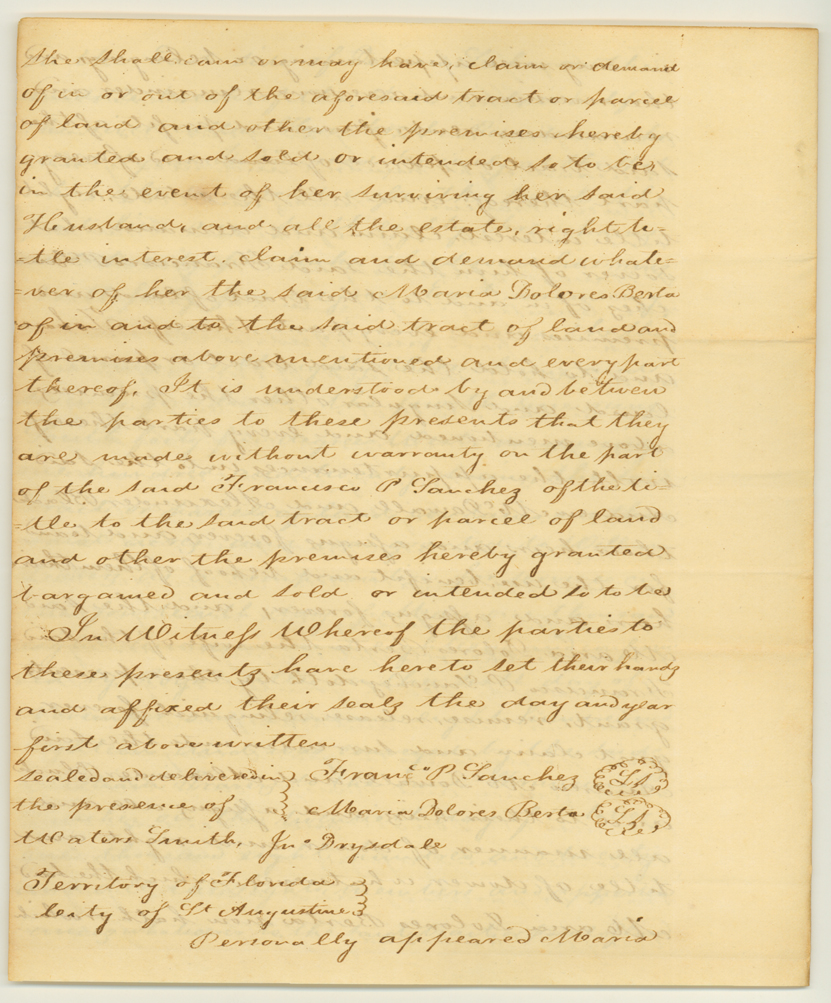 She shall can or may have, claim or demand
of in or out of the aforesaid tract or parcel
of land and other the premises hereby
granted and sold or intended so to be
in the event of her surviving her said
Husband, and all the estate, right ti=
=tle interest claim and demand whate=
=ver of her the said Maria Dolores Berta
of in and to the said tract of land and
premises above mentioned and every part
thereof. It is understood by and between
the parties to these presents that they
are made without warranty on the part
of the said Francisco P Sanchez of the ti=
=tle to the said tract or parcel of land
and other the premises hereby granted
bargained and sold or intended so to be
In Witness Whereof the parties to
these presents have hereto set their hands
and affixed their seals the day and year
first above written
sealed and delivered in } Franco P Sanchez LS
the presence of } Maria Dolores Berta LS
Waters Smith, Jno Drysdale
Territory of Florida }
City of St Augustine }
Personally appeared Maria